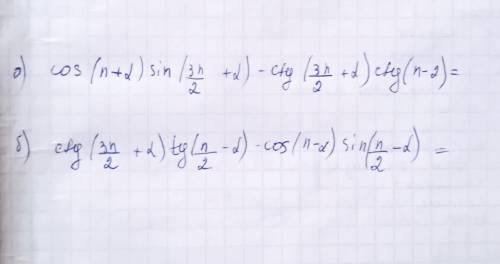 а) cos(π+α) sin(3π/2 +α) - ctg(3π/2 +α) ctg(π-α) =
б) ctg(3π/2 +α) tg(π/2 -α) - cos(π-α) sin(π/2 -α) =